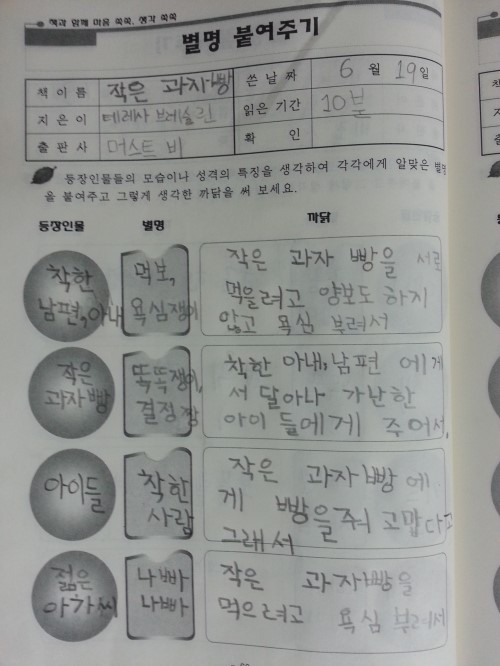 책과 함께 마음 쑥쑥, 생각 쑥쑥
별명 붙여주기
책 이름 작은 과자빵 쓴 날짜 6월 19일
지은이 테레사 브레슬린 읽은 기간 10분
출판사 머스트 비 확인
등장인물들의 모습이나 성격의 특징을 생각하여 각각에게 알맞은 별명
을 붙여주고 그렇게 생각한 까닭을 써 보세요.
등장인물 별명 까닭
착한
남편,아내
먹보,
욕심쟁이
작은 과자 빵을 서로
먹을려고 양보도 하지
않고 욕심 부려서
작은
과자빵
똑똑쟁이,
결정짱
착한 아내,남편 에게
서 달아나 가난한
아이들에게 주어서.
아이들
착한
사람
작은 과자빵에
게 빵을줘 고맙다고
그래서
젊은
아가씨
나빠
나빠
작은 과자빵을
먹으려고 욕심 부려서